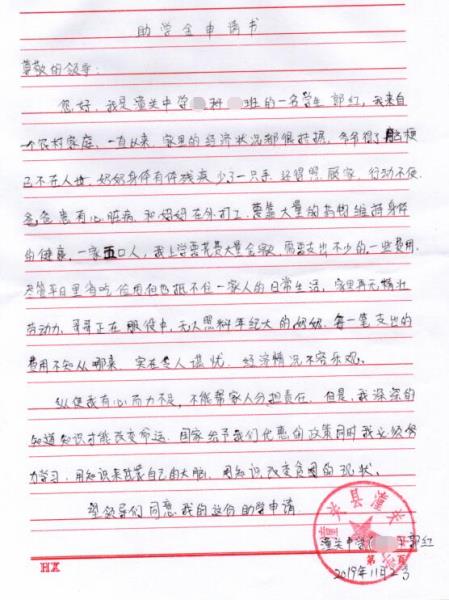 助学金申请书
尊敬的领导：
您好，我是潼关中学 科 班的一名学生 郭红，我来自
一个农村家庭，一直以来，家里的经济状况都很拮据，爷爷得了脑梗
已不在人世，奶奶身体有体残疾 少了一只手，经常照顾家，行动不便
爸爸患有心脏病 和妈妈在外打工，要靠大量的药物维持身体
的健康，一家五口人，我上学要花费大量金额，需要支出不少的一些费用，
尽管平日里省吃俭用但仍抵不住一家人的日常生活，家里再无精壮
劳动力，哥哥正在服役中，无人照料年纪大的奶奶，每一笔支出的
费用不知从哪来，实在令人堪忧，经济情况不容乐观。
纵使我有心而力不足，不能帮家人分担责任，但是，我深深的
知道知识才能改变命运，国家给予我们优惠的政策同时我必须努
力学习，用知识来武装自己的大脑，用知识改变贫困的现状。
望领导们同意我的这份助学申请
潼关中学 郭红
2019年11月2号
HX 第 页
县潼关